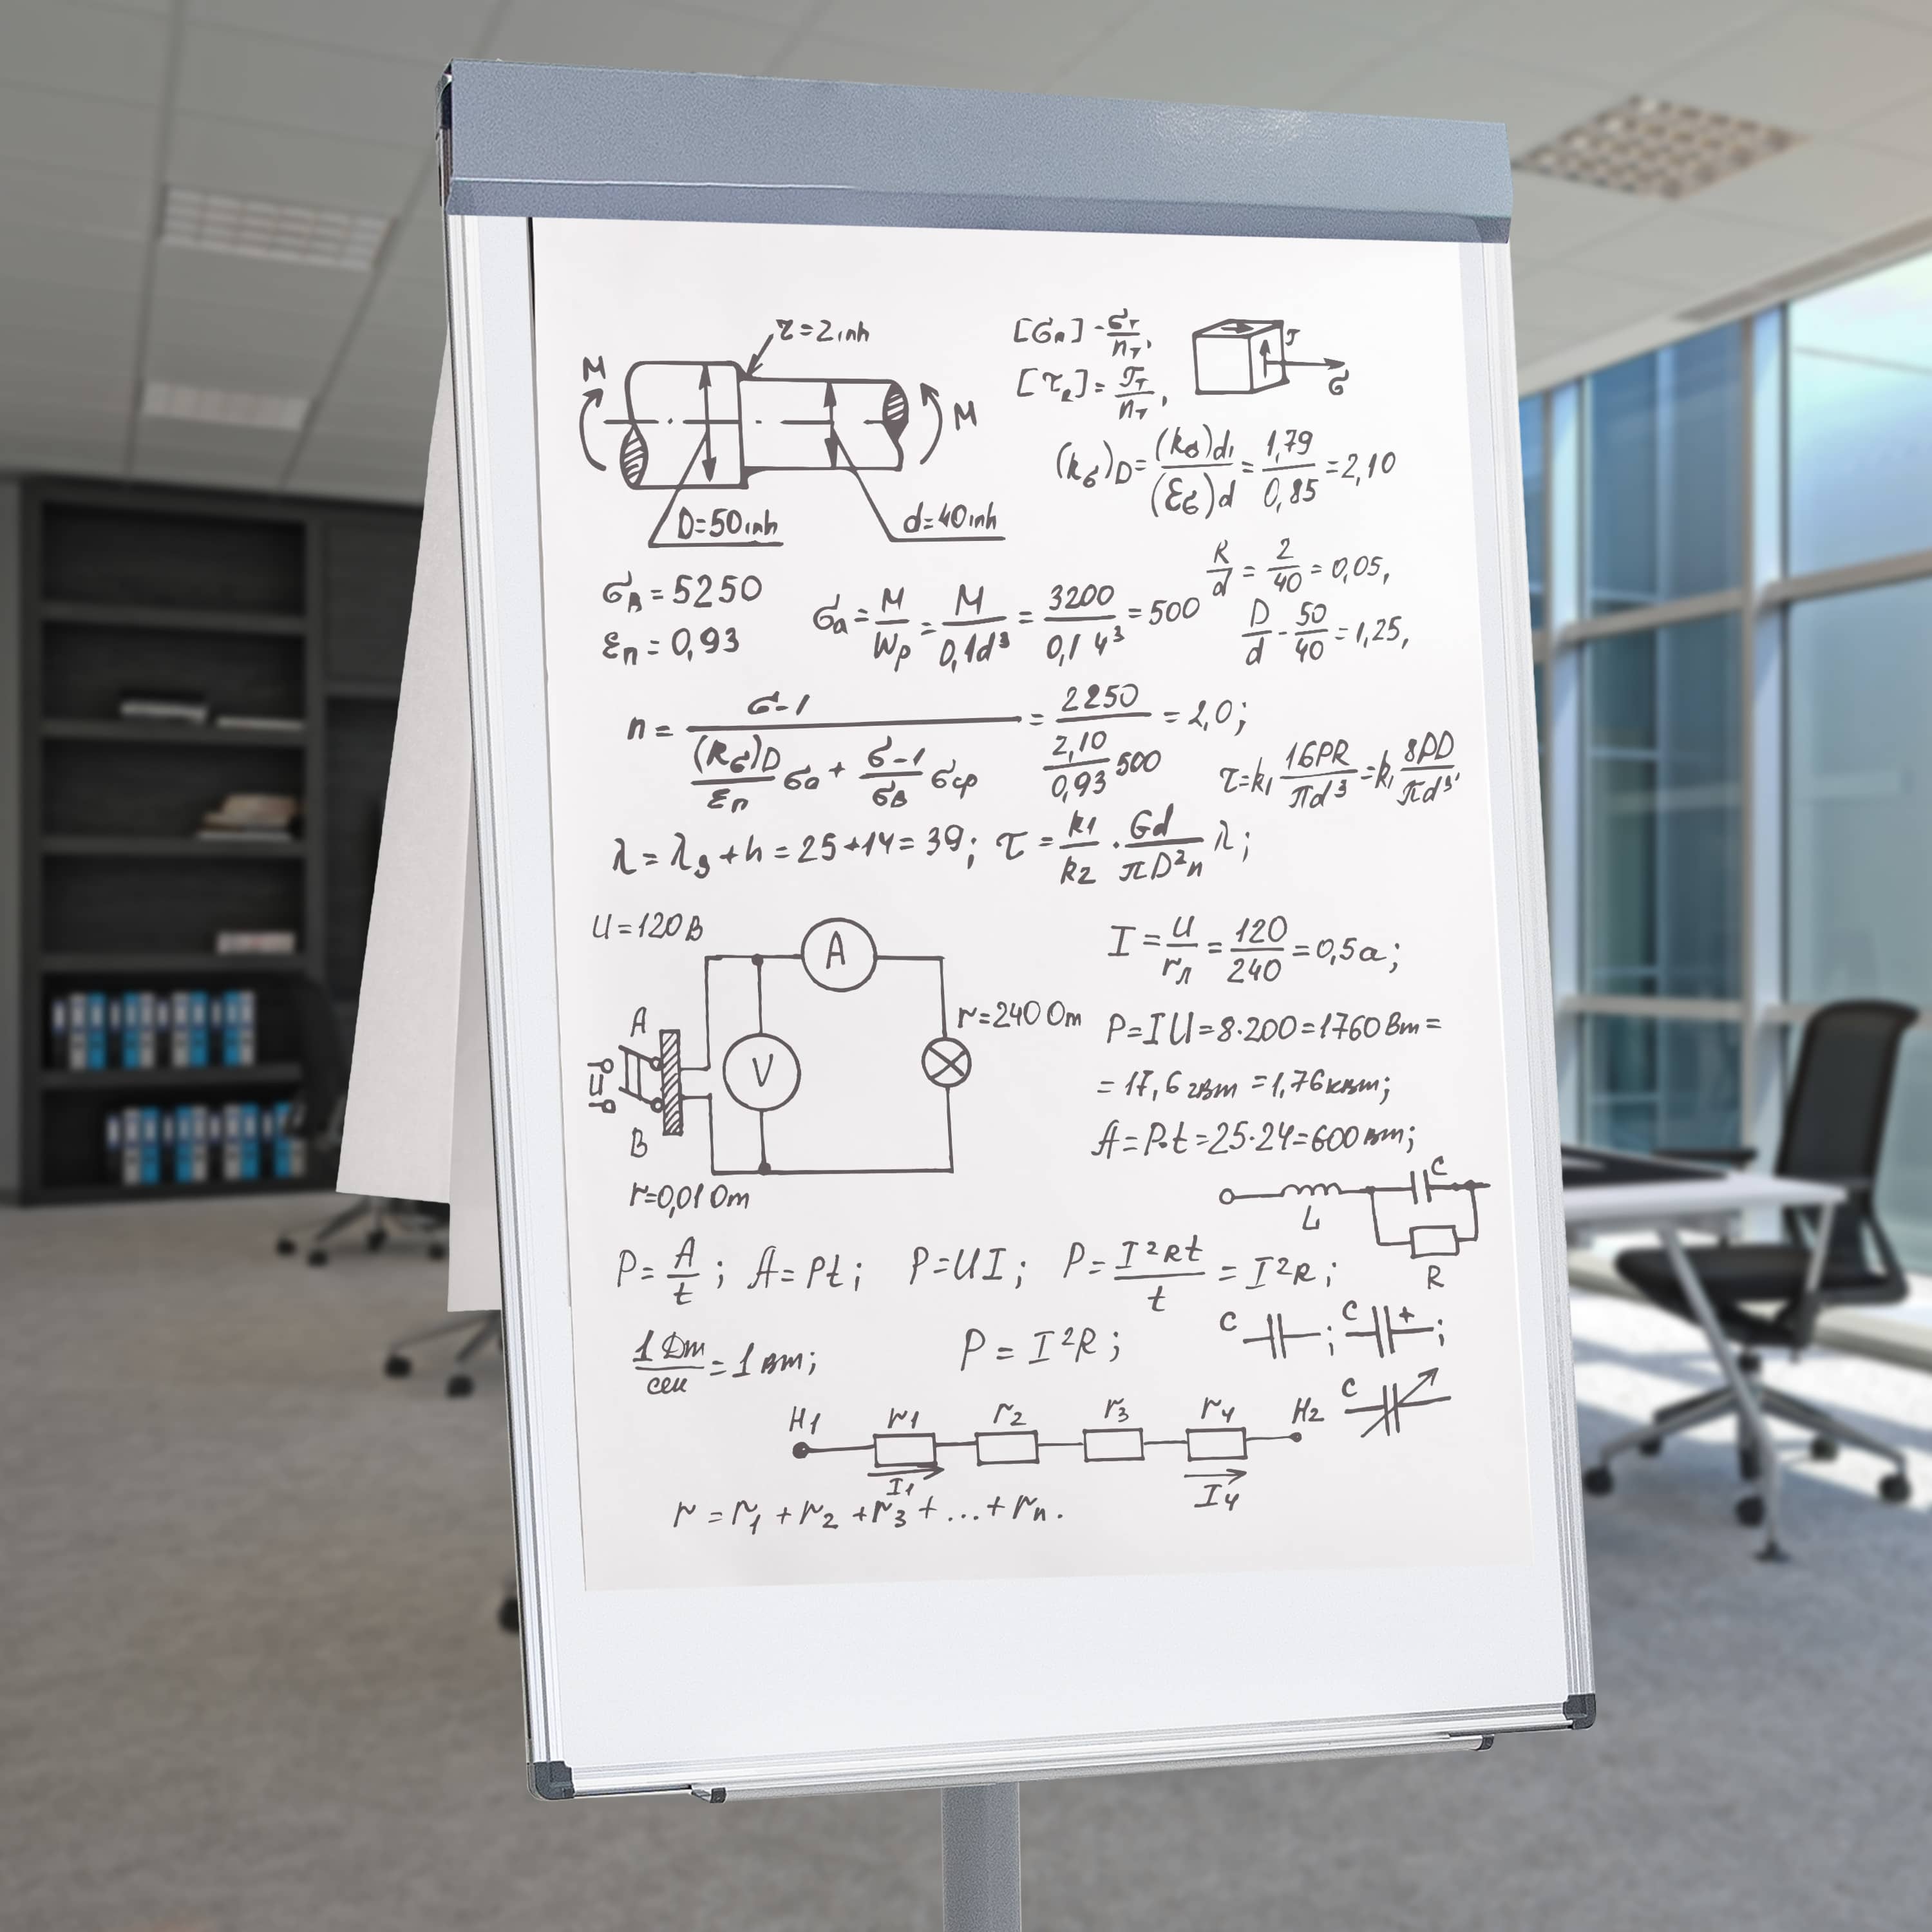 r=2inh
M
M
D=50inh
d=40inh
[σ_n] - σ_T/n_T,
[τ_R] = 𝒯_T/n_T,
𝒯
σ
(k_σ)D = (k_σ)d₁/(ε_σ)d = 1,79/0,85 = 2,10
R/d = 2/40 = 0,05,
D/d - 50/40 = 1,25,
σ_B = 5250
ε_n = 0,93
σ_a = M/W_p = M/0,1d³ = 3200/0,1 4³ = 500
n = σ-1/((R_σ)D/ε_n σ_a + σ-1/σ_B σ_cp) = 2250/(2,10/0,93 500) = 2,0;
τ=k₁ 16PR/πd³ = k₁ 8PD/πd³,
λ = λ_3 + h = 25+14 = 39; τ = k1/k2 · Gd/πD²n λ;
U = 120 В
A
V
A
B
U
r=240 Om
r=0,01 Om
I = U/r_л = 120/240 = 0,5a;
P=IU=8·200=1760 Вт =
= 17,6 гвт = 1,76 квт;
A = P·t = 25·24 = 600 вт;
C
L
R
P = A/t; A = Pt; P = UI; P = I²Rt/t = I²R;
1 Дт/сек = 1 вт;
P = I²R;
C ; C + ;
C
H1 r1 r2 r3 r4 H2
I1
I4
r = r₁ + r₂ + r₃ + ... + rₙ.